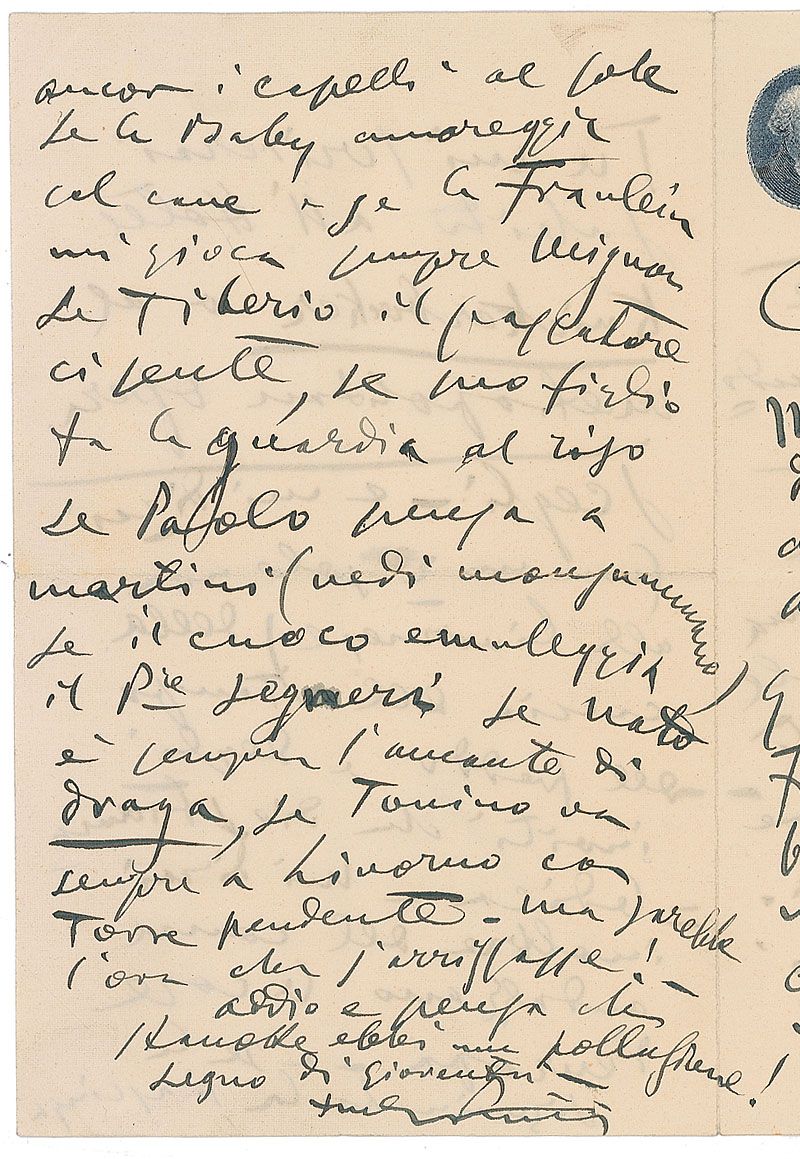 ancor i capelli al sole
se la Baby amoreggia
col cane e se la Fraulein
mi gioca sempre Mignon
se Tiberio il pescatore
ci sente, se suo figlio
fa la guardia al riso
se Paolo pensa a
martini (vedi monsummano)
se il cuoco emuleggia
il Pre Segneri se nato
è sempre l'amante di
draga, se Tonino va
sempre a Livorno con
Torre pendente - ma sarebbe
l'ora che s'arrizzasse! -
addio e pensa che
stanotte ebbi una polluzione!
segno di gioventù -